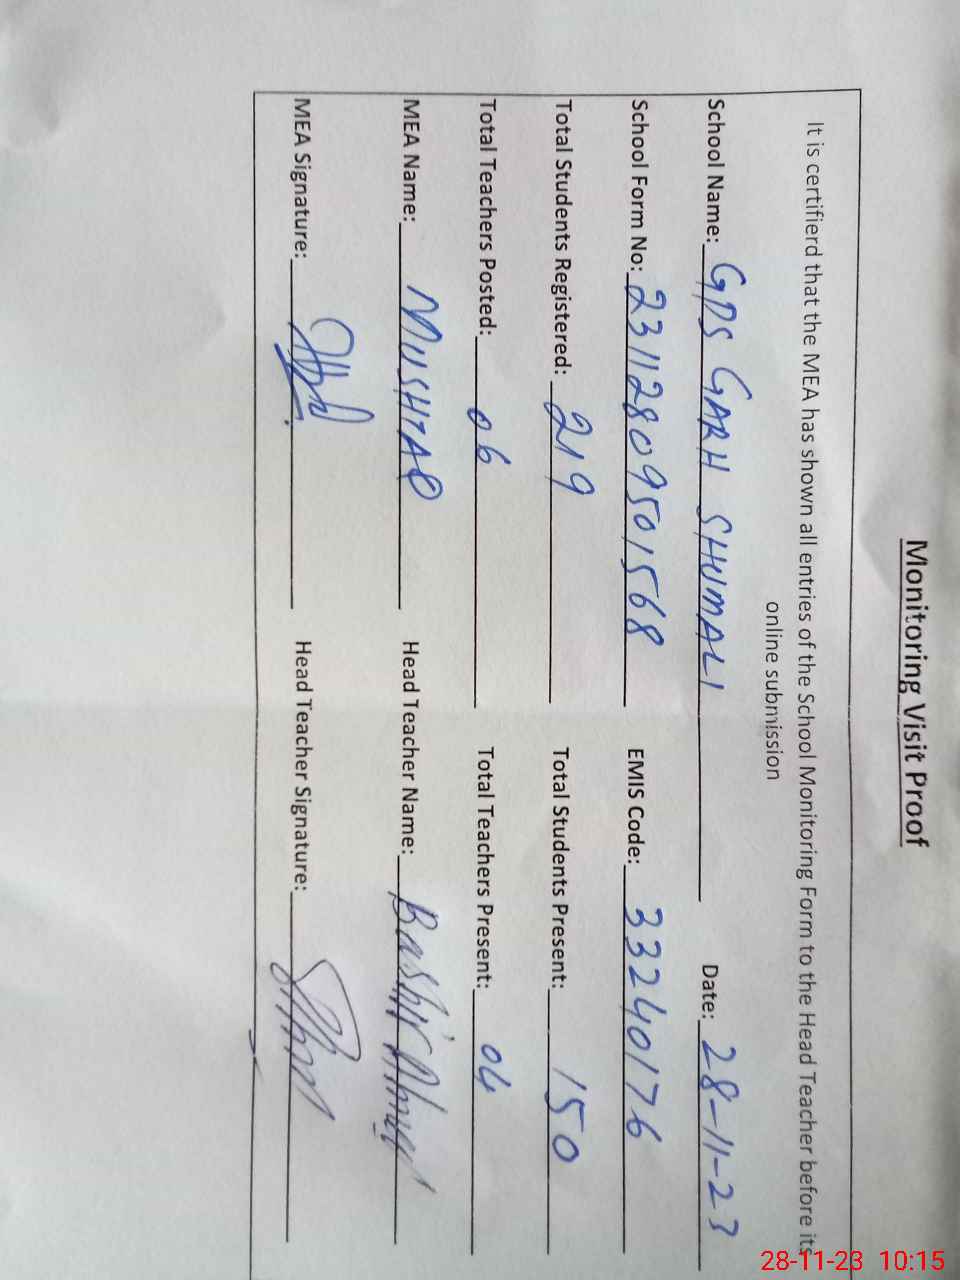 Monitoring Visit Proof
It is certifierd that the MEA has shown all entries of the School Monitoring Form to the Head Teacher before its
online submission
School Name: GPS GARH SHUMALI Date: 28-11-23
School Form No: 23112809501568 EMIS Code: 33240176
Total Students Registered: 219 Total Students Present: 150
Total Teachers Posted: 06 Total Teachers Present: 04
MEA Name: MUSHTAQ Head Teacher Name: Bashir Ahmed
MEA Signature: Head Teacher Signature:
28-11-23 10:15